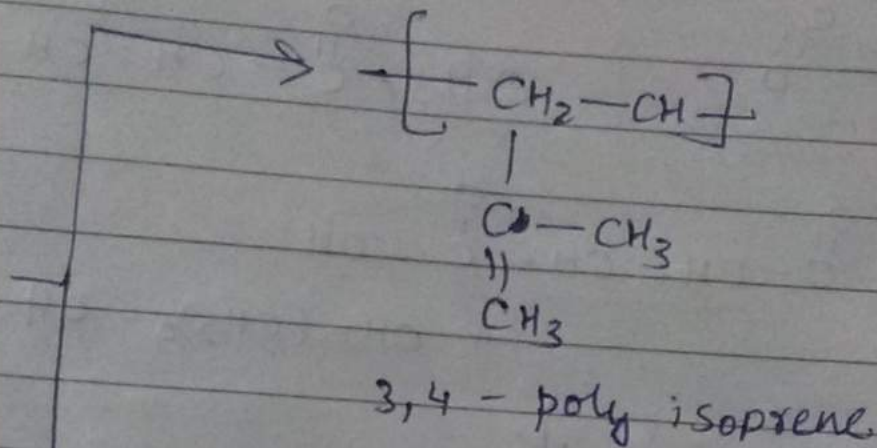 -[-CH₂-CH]-
|
C-CH₃
||
CH₃
3,4 - poly isoprene